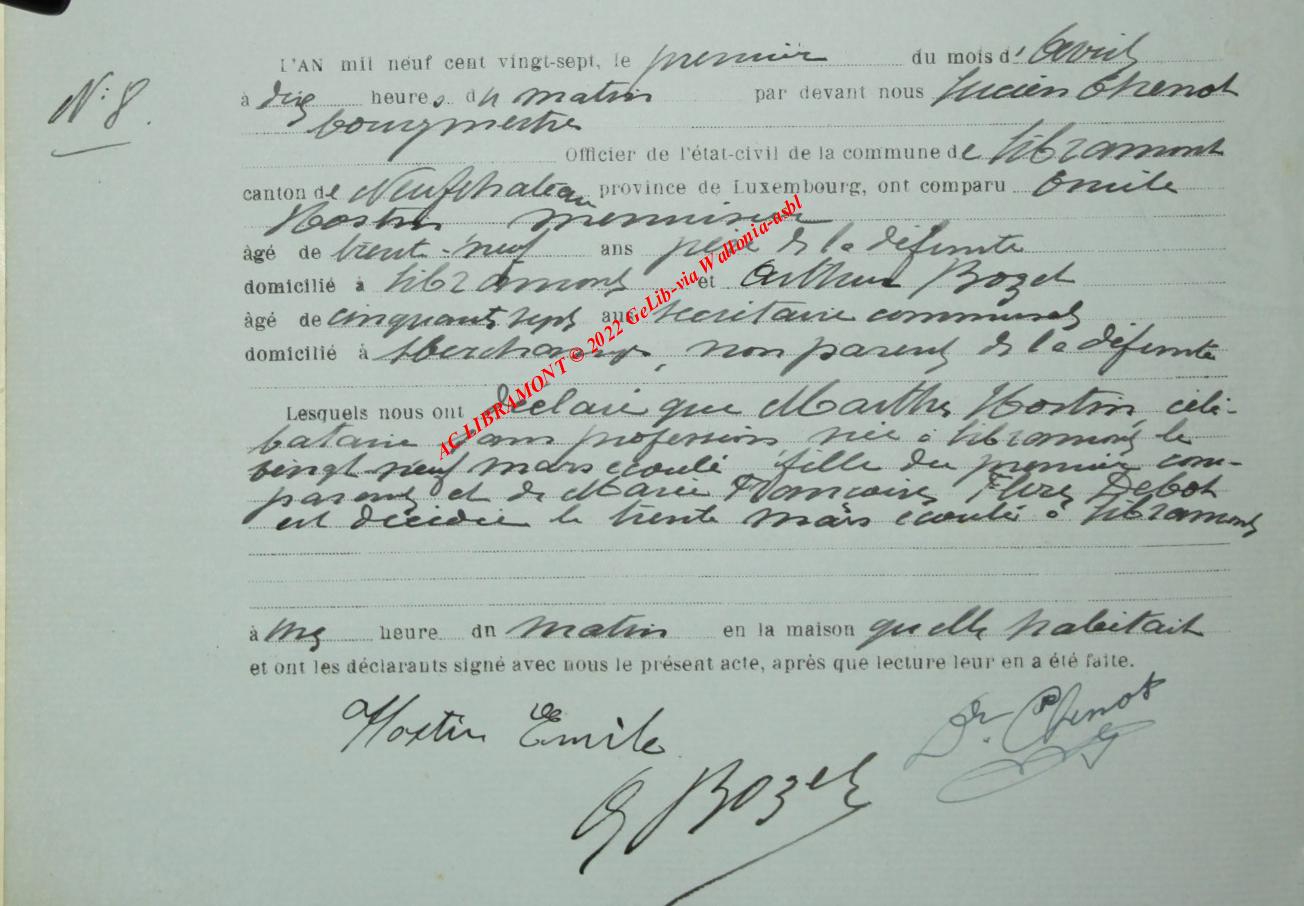 N° 8.
L'AN mil neuf cent vingt-sept, le premier du mois d'Avril
à dix heures du matin par devant nous Lucien Chenot
bourgmestre
Officier de l'état-civil de la commune de Libramont
canton de Neufchateau province de Luxembourg, ont comparu Emile
Hostin menuisier
âgé de trente-neuf ans père de la défunte
domicilié à Libramont et Arthur Bozet
âgé de cinquante sept ans secrétaire communal
domicilié à non parent de la défunte
Lesquels nous ont déclaré que Marthe Hostin, céli-
bataire sans profession née à Libramont le
vingt neuf mars écoulé, fille du premier com-
parent et de Marie Françoise Debot
est décédée le trente mars écoulé à Libramont
à heure du matin en la maison qu'elle habitait
et ont les déclarants signé avec nous le présent acte, après que lecture leur en a été faite.
Hostin Emile
Dr. Chenot
Bozet
AC LIBRAMONT © 2022 GeLib-via Wallonia-asbl